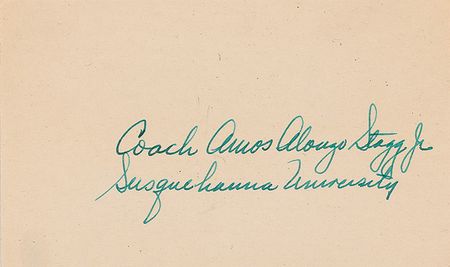 Coach Amos Alonzo Stagg Jr
Susquehanna University